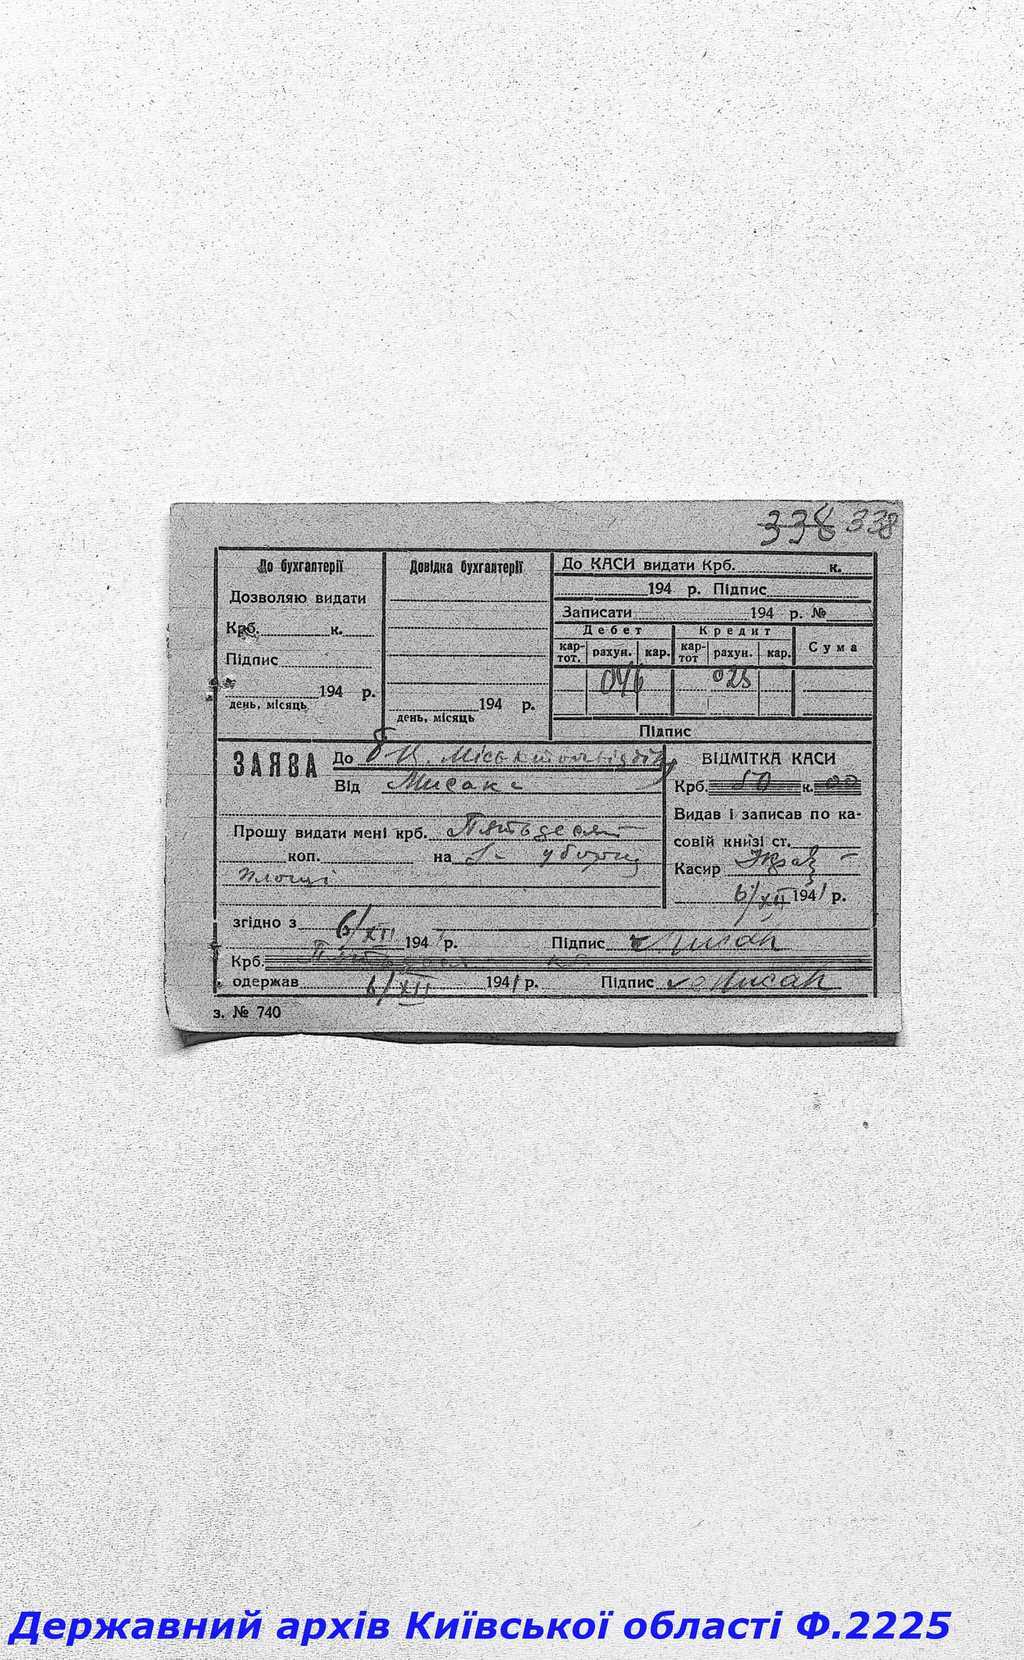 338 338
До бухгалтерії
Дозволяю видати
Крб. к.
Підпис
194 р.
день, місяць
Довідка бухгалтерії
194 р.
день, місяць
До КАСИ видати Крб. к.
194 р. Підпис
Записати 194 р. №
Дебет Кредит Сума
кар-тот. рахун. кар. кар-тот рахун. кар.
046 025
Підпис
ЗАЯВА До
Від Мисак
Прошу видати мені крб. Пятьдесят
коп. на
площі
ВІДМІТКА КАСИ
Крб. 50 к. 00
Видав і записав по ка-
совій книзі ст.
Касир
6/XII 1941 р.
згідно з
6/XII 194 р. Підпис Мисак
Крб. Пятьдесят
одержав 6/XII 1941 р. Підпис Мисак
з. № 740
Державний архів Київської області Ф.2225